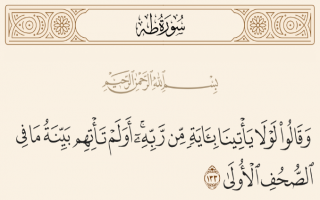 سُورَةُ طه
بِسْمِ اللَّهِ الرَّحْمَٰنِ الرَّحِيمِ
وَقَالُوا۟ لَوْلَا يَأْتِينَا بِـَٔايَةٍ مِّن رَّبِّهِۦٓ ۚ أَوَلَمْ تَأْتِهِم بَيِّنَةُ مَا فِى
ٱلصُّحُفِ ٱلْأُولَىٰ ١٣٣